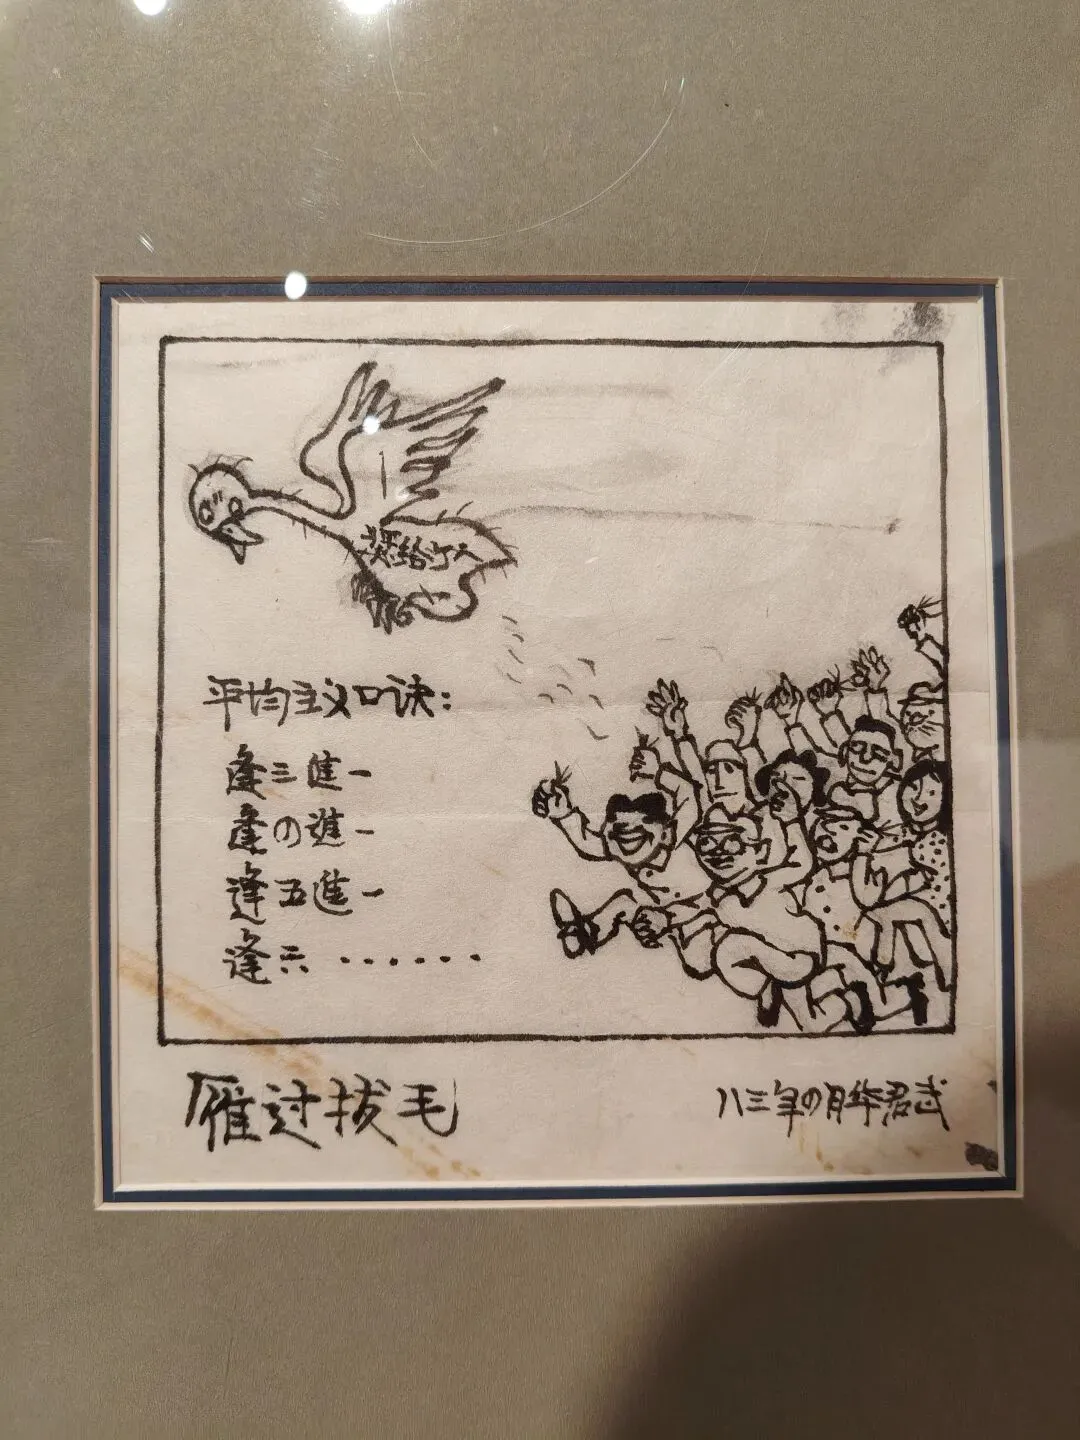 奖给个人
平均主义口诀：
逢三進一
逢四進一
逢五進一
逢六······
雁过拔毛
八三年四月华君武